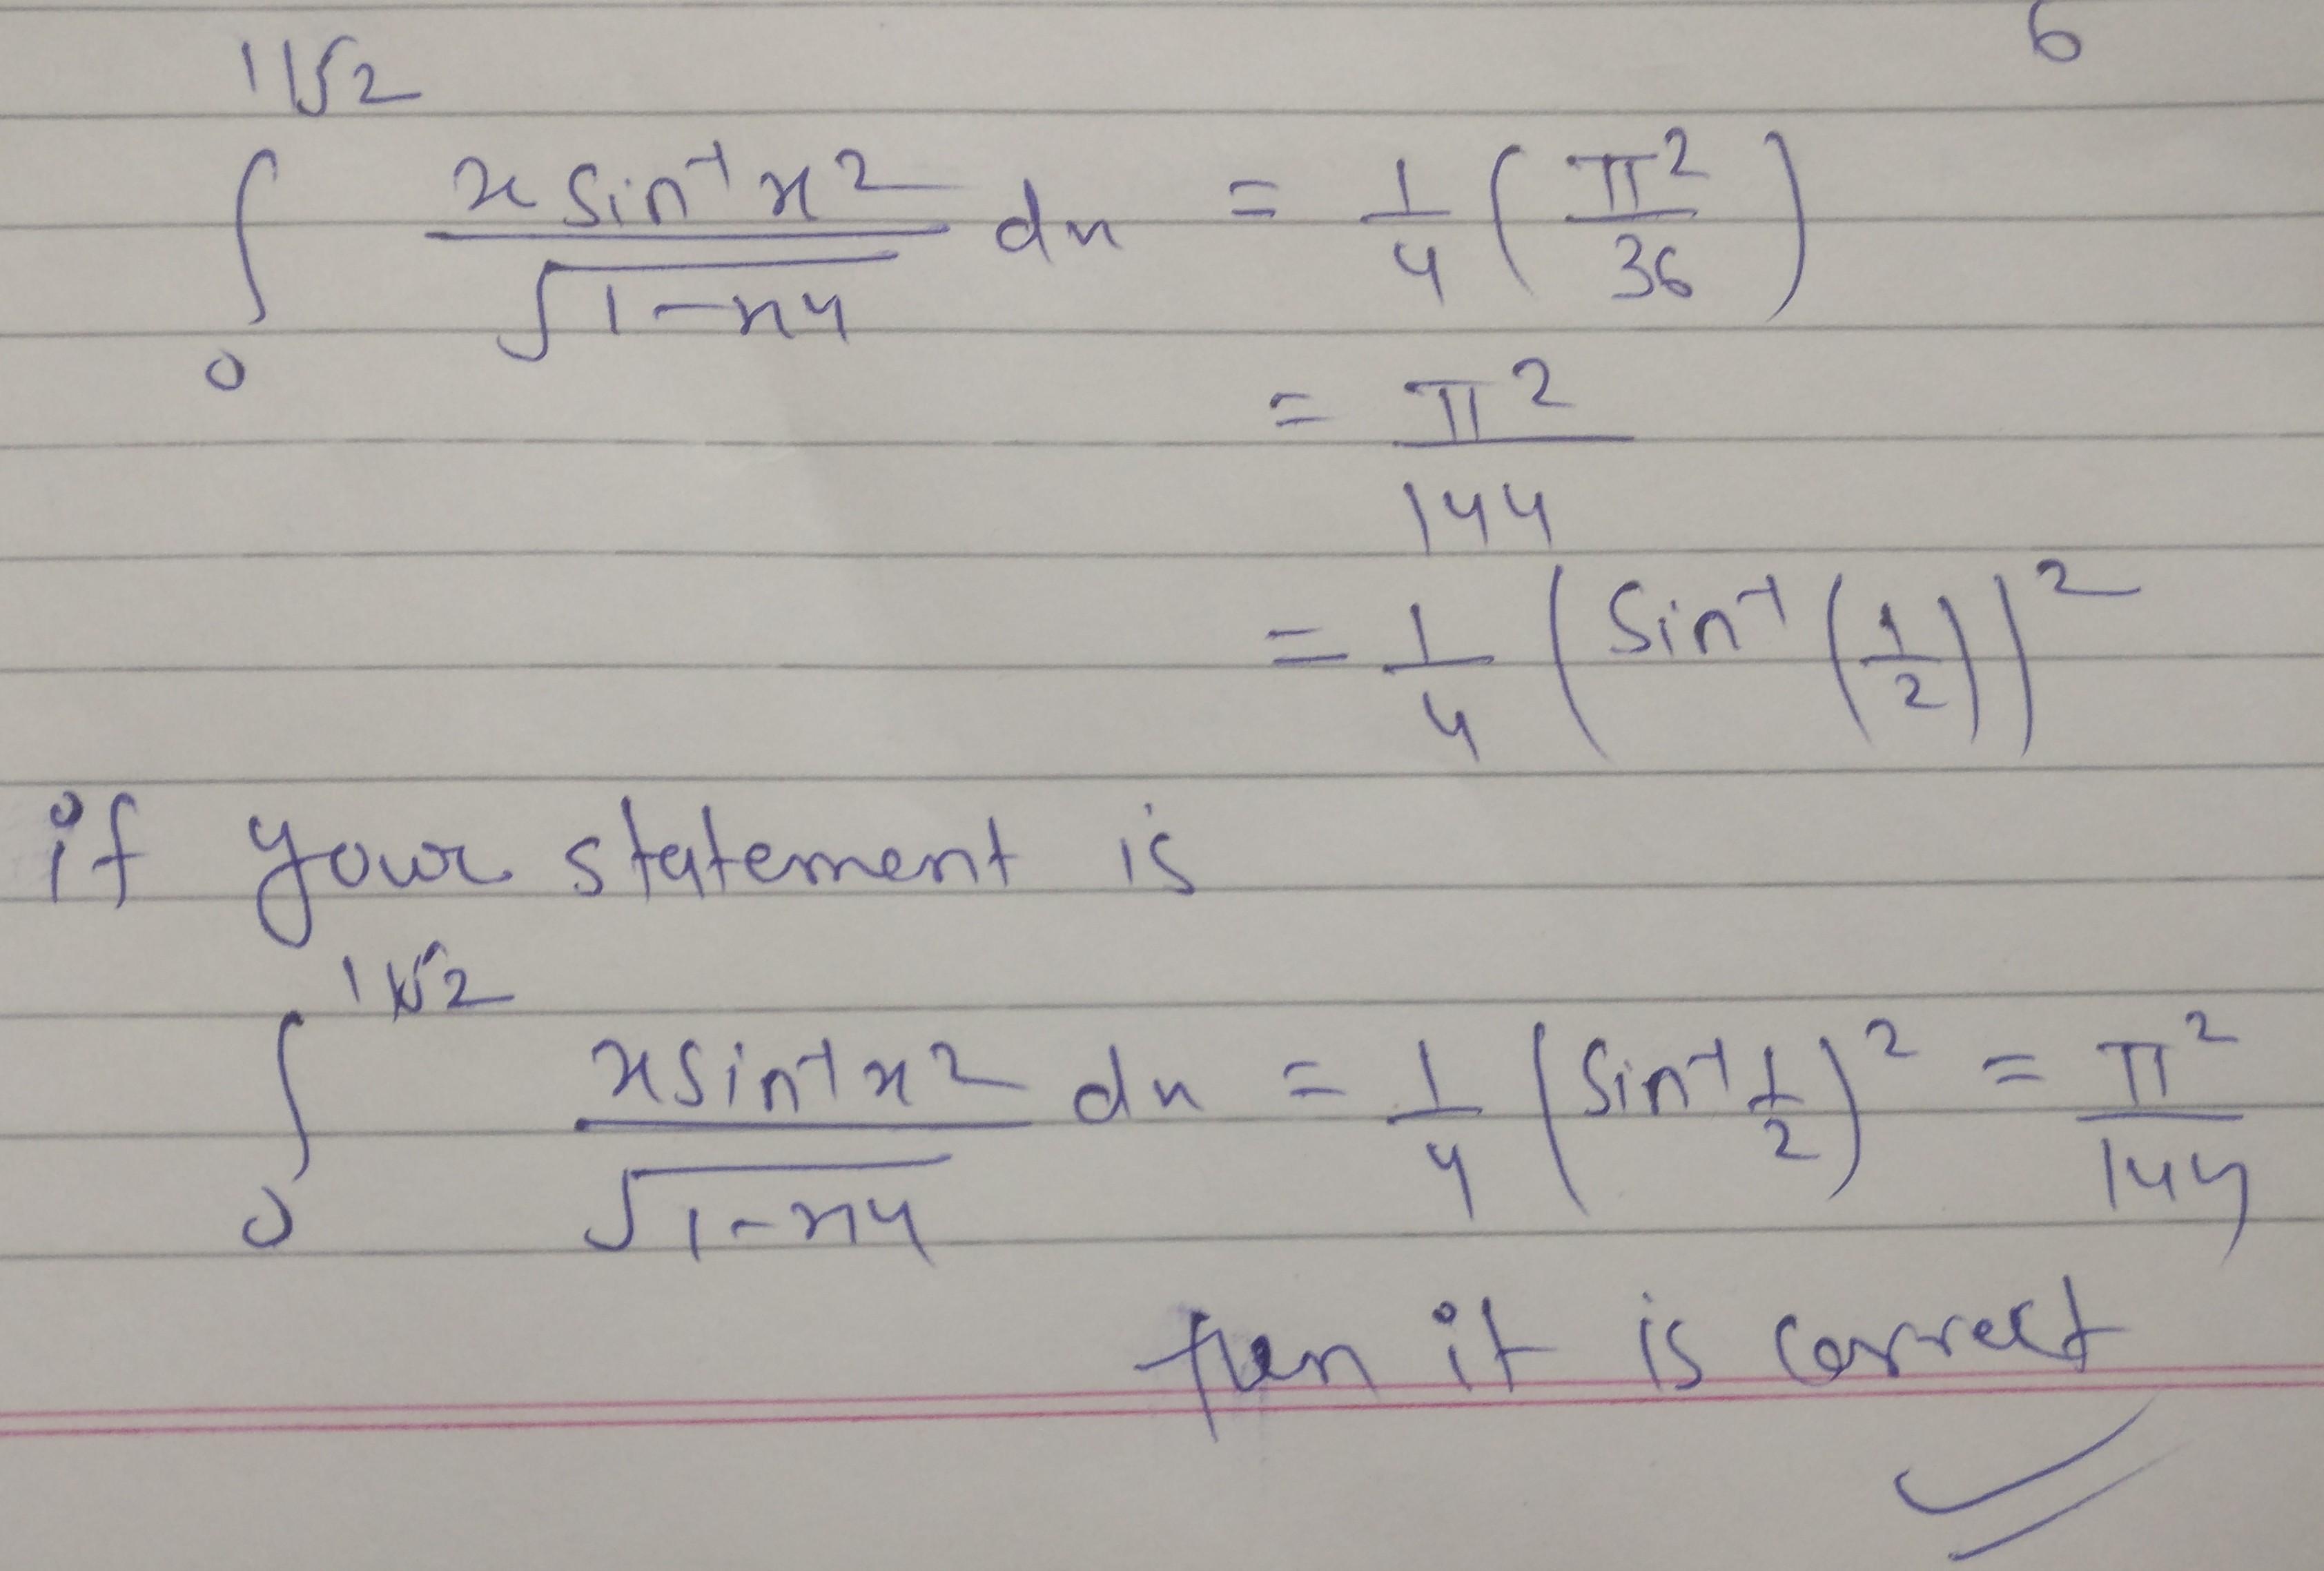 6
∫₀^(1/√2) (x sin⁻¹ x²)/(√(1-x⁴)) dx = 1/4 (π²/36)
= π²/144
= 1/4 (Sin⁻¹(1/2))²
if your statement is
∫₀^(1/√2) (x sin⁻¹ x²)/(√(1-x⁴)) dx = 1/4 (Sin⁻¹ 1/2)² = π²/144
then it is correct